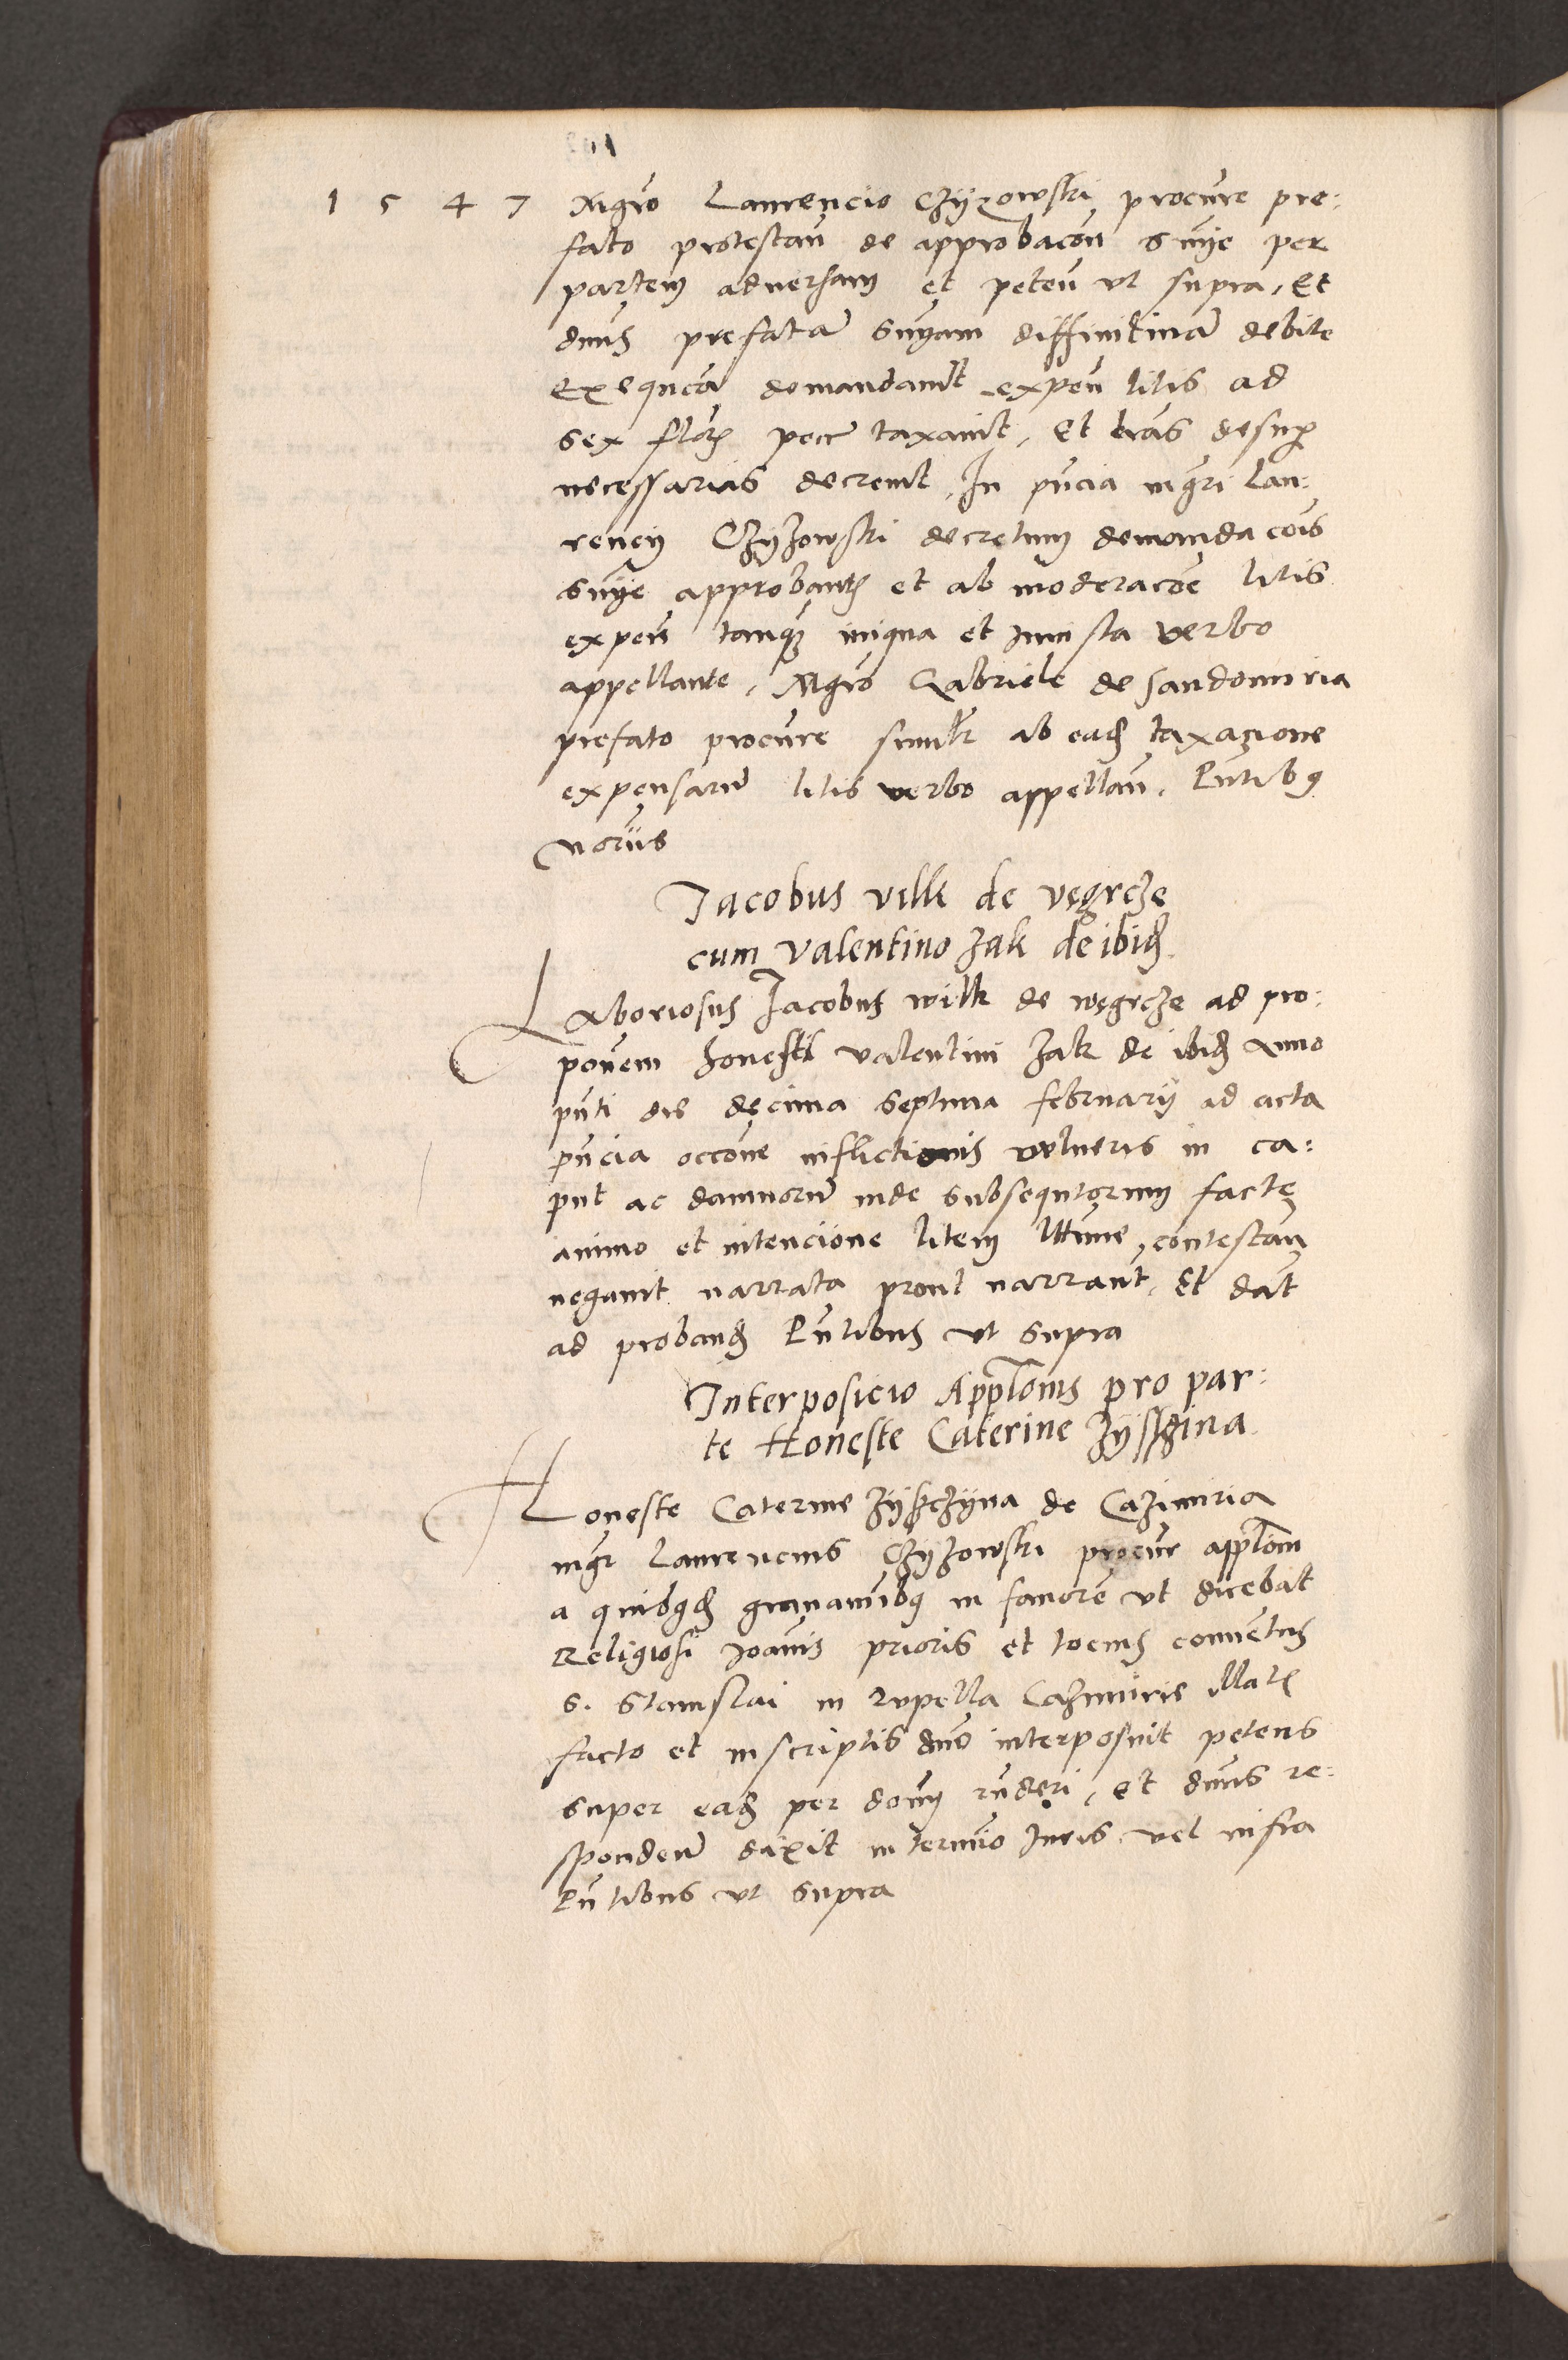 1 5 4 7 Mgro Laurencio Czÿzowski procure pre:
fato protestan de approbacon snÿe per
partem adversam et peten ut supra, Et
dnus prefata snÿam diffinitiva debite
Exequcoi demandavit expen litis ad
sex flor pecc taxavit, Et lras desup
necessarias decrevit, In pncia mgri Lau:
rencÿ Czÿzowski decretum demandacois
snÿe approbant et ab moderacoe litis
expen tanq iniqua et Iniusta verbo
appellante, Mgro Gabriele de Sandomiria
prefato procure similr ab ead taxacione
expensaru litis verbo appellan, Pntibq
noriis
Jacobus villk de vęgrcze
cum valentino zak de ibid
Laboriosus Jacobus wilk de węgrcze ad pro:
ponem honesti valentini zak de ibid Anno
pnti die decima septima februarÿ ad acta
pncia occone inflictionis vulneris in ca:
put ac damnoru inde subsequtorum facte
animo et intencione litem lttime contestan
negavit narrata prout narrant, Et dat
ad proband Pntibus ut supra
Interposicio Appllonis pro par:
te Honeste Caterine zÿszina
Honeste Caterine zÿsczÿna de Cazimiria
mgr Laurencius Czÿzowski procur applloni
a quibqd gravamibq in favore ut dicebat
Religiosi Joanis prioris et tocius conventus
S. Stanislai in rupella Cazimirie illat
facto et in scriptis dno interposuit petens
super ead per donu rnderi, et dnus re:
sponden dixit in termio Iuris vel infra
Pntibus ut supra